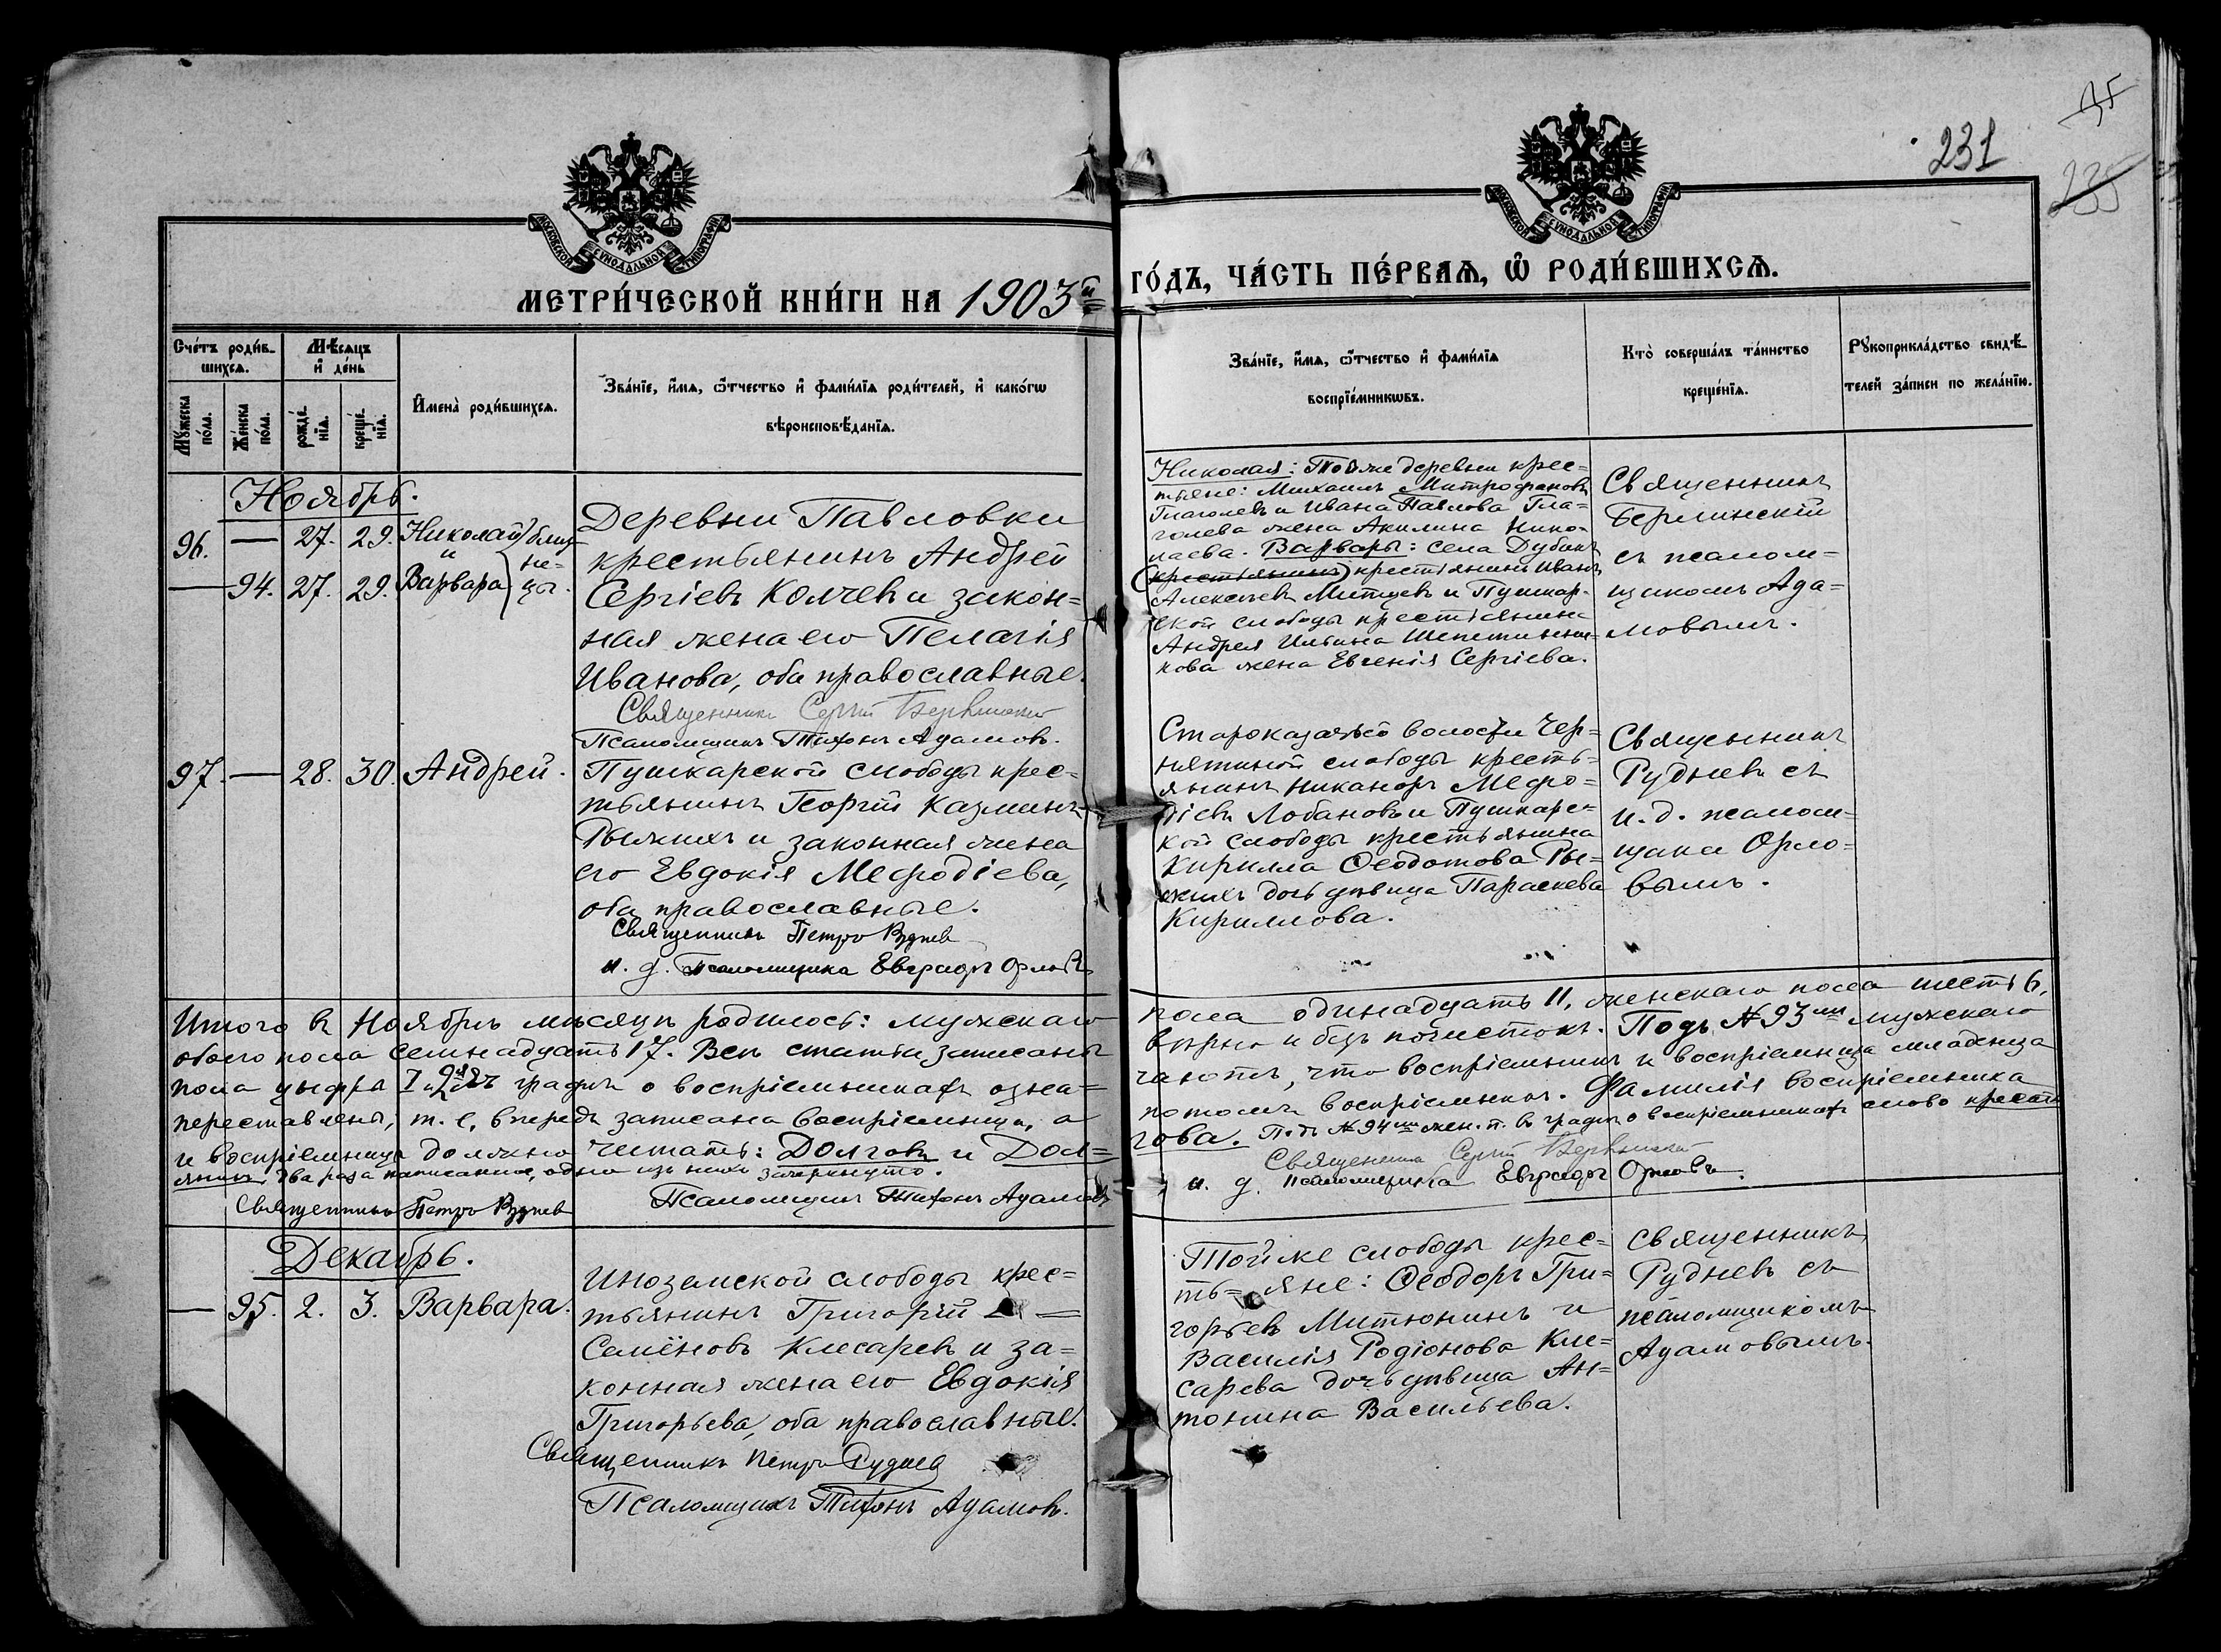 35
231
235
МОСКОВСКОЙ СУНОДАЛЬНОЙ ТИПОГРАФІИ
МОСКОВСКОЙ СУНОДАЛЬНОЙ ТИПОГРАФІИ
МЕТРИ́ЧЕСКОЙ КНИ́ГИ НА 1903й
ГО́ДЪ, ЧА́СТЬ ПЕ́РВАѦ, Ѡ҆ РОДИ́ВШИХСѦ.
Сче́тъ роди́в-
шихсѧ.
Мꙋ́жеска по́ла.
Же́нска по́ла.
Мѣ́сѧцъ
и҆ де́нь
рожде́нїѧ.
креще́нїѧ.
И҆мена̀ роди́вшихсѧ.
Зва́нїе, и҆́мѧ, ѻ҆́тчество и҆ фами́лїѧ роди́телей, и҆ како́гѡ
вѣроисповѣ́данїѧ.
Зва́нїе, и҆́мѧ, ѻ҆́тчество и҆ фами́лїѧ
воспрїе́мникѡвъ.
Кто̀ соверша́лъ та́инство
креще́нїѧ.
Рꙋкоприкла́дство свидѣ́-
телей за́писи по жела́нїю.
Ноябрь.
96. — 27. 29. Николай
и
— 94. 27. 29. Варвара
близ-
не-
цы.
Деревни Павловки
крестьянинъ Андрей
Сергіевъ Колчевъ и закон=
ная жена его Пелагія
Иванова, оба православные.
Священникъ Сергій
Псаломщикъ Тихонъ Адамовъ.
Николая: Той же деревни крес=
тьяне: Михаилъ Митрофановъ
Глаголевъ и Ивана Павлова Гла=
голева жена Акилина Нико=
лаева. Варвары: села Дубинъ
(крестьянинъ) крестьянинъ Иванъ
Алексѣевъ Митцевъ и Пушкар-
ской слободы крестьянина
Андрея Ильина
кова жена Евгенія Сергіева.
Священникъ
съ псалом=
щикомъ Ада=
мовымъ.
97. — 28. 30. Андрей.
Пушкарской слободы крес=
тьянинъ Георгій Казминъ
Рыжихъ и законная жена
его Евдокія Мефодіева,
оба православные.
Священникъ Петръ Рудневъ
и. д. Псаломщика Евграфъ Орловъ
Староказачьей волости Чер=
нятиной слободы кресть=
янинъ Никаноръ Мефо=
діевъ Лобановъ и Пушкарс=
кой слободы крестьянина
Кирилла Ѳеодотова Ры=
жихъ дочь дѣвица Параскева
Кириллова.
Священникъ
Рудневъ съ
и. д. псалом=
щика Орло=
вымъ.
Итого въ Ноябрѣ мѣсяцѣ родилось: мужскаго
пола одинадцать 11, женскаго пола шесть 6,
обоего пола семнадцать 17. Всѣ статьи записаны
вѣрно и безъ почистокъ. Подъ № 93мъ мужскаго
пола цыфры 1 и 2 въ графѣ о воспріемникахъ озна=
чаютъ, что воспріемникъ и воспріемница младенца
переставлены, т. е. впередъ записана воспріемница, а
потомъ воспріемникъ. Фамилія воспріемника
и воспріемницы должно читать: Долговъ и Дол=
гова. Подъ № 94мъ жен. п. въ графѣ о воспріемникахъ слово кресть
янинъ, два раза написанное, одно изъ нихъ зачеркнуто.
Священникъ Сергій
Священникъ Петръ Рудневъ
Псаломщикъ Тихонъ Адамовъ
и. д. псаломщика Евграфъ Орловъ.
Декабрь.
— 95. 2. 3. Варвара.
Иноземской слободы крес=
тьянинъ Григорій =
Семёновъ Клесаревъ и за=
конная жена его Евдокія
Григорьева, оба православные.
Священникъ Петръ Рудневъ
Псаломщикъ Тихонъ Адамовъ.
Той же слободы крес=
ть=яне: Ѳеодоръ Гри=
горьевъ Митюнинъ и
Василія Родіонова Кле=
сарева дочь дѣвица Ан=
тонина Васильева.
Священникъ
Рудневъ съ
псаломщикомъ
Адамовымъ.